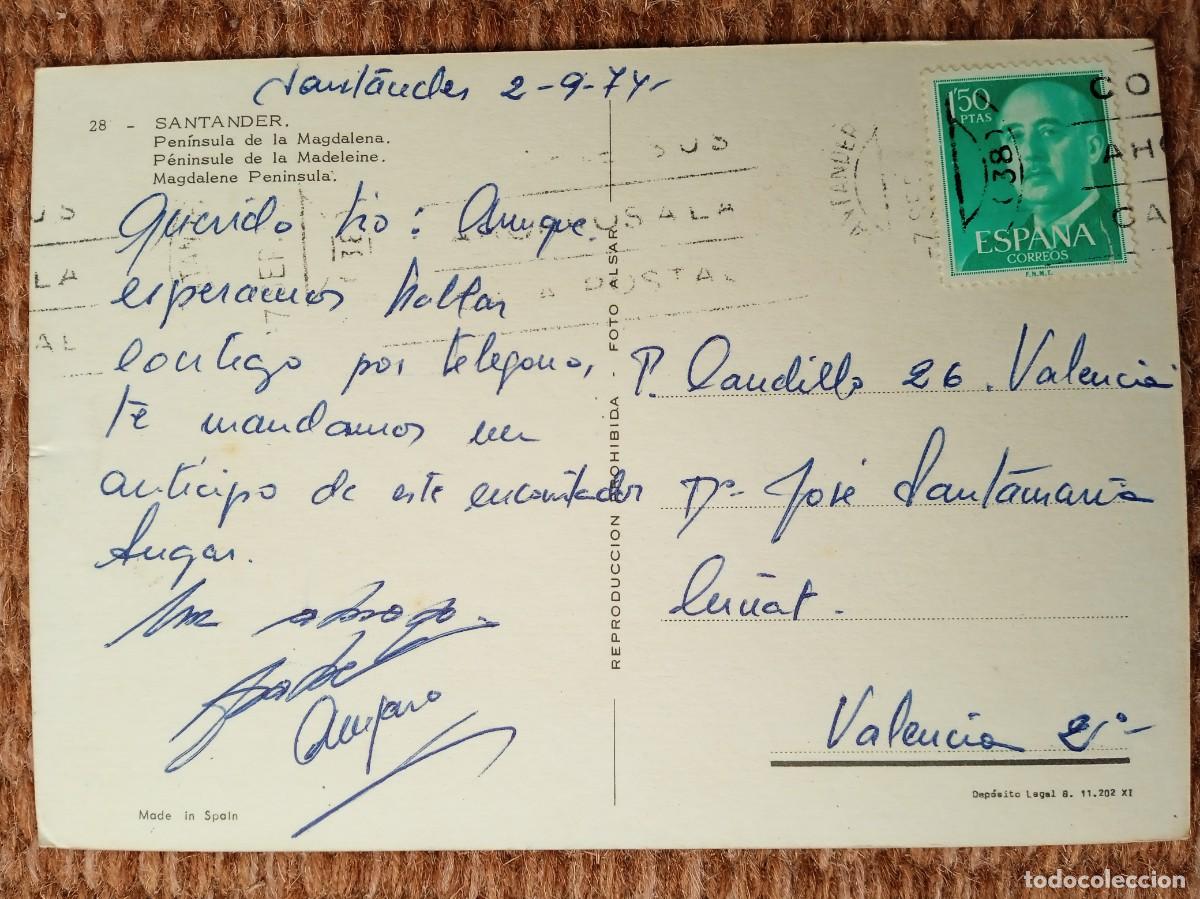 Santander 2-9-74
28 - SANTANDER.
Península de la Magdalena.
Péninsule de la Madeleine.
Magdalene Peninsula.
Querido tio: Aunque
esperamos hablar
contigo por telefono,
te mandamos un
anticipo de este encantador
lugar.
Un abrazo.
Amparo
Made in Spain
REPRODUCCION PROHIBIDA - FOTO ALSAR.
1'50
PTAS
ESPAÑA
CORREOS
F.N.M.T.
SUS
USALA
POSTAL
SANTANDER
7 SEP
38
CO
AHO
CA
P. Caudillo 26. Valencia
Dº- José Santamaria
Cuñat.
Valencia 2ª-
Depósito Legal B. 11.202 XI
todocoleccion